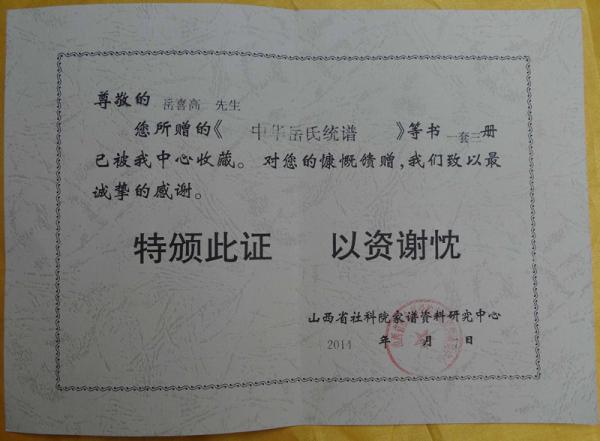 尊敬的 岳喜高 先生
您所赠的《 中华岳氏统谱 》等书 一套三 册
已被我中心收藏。对您的慷慨馈赠,我们致以最
诚挚的感谢。
特颁此证 以资谢忱
山西省社科院家谱资料研究中心
2014 年 月 日